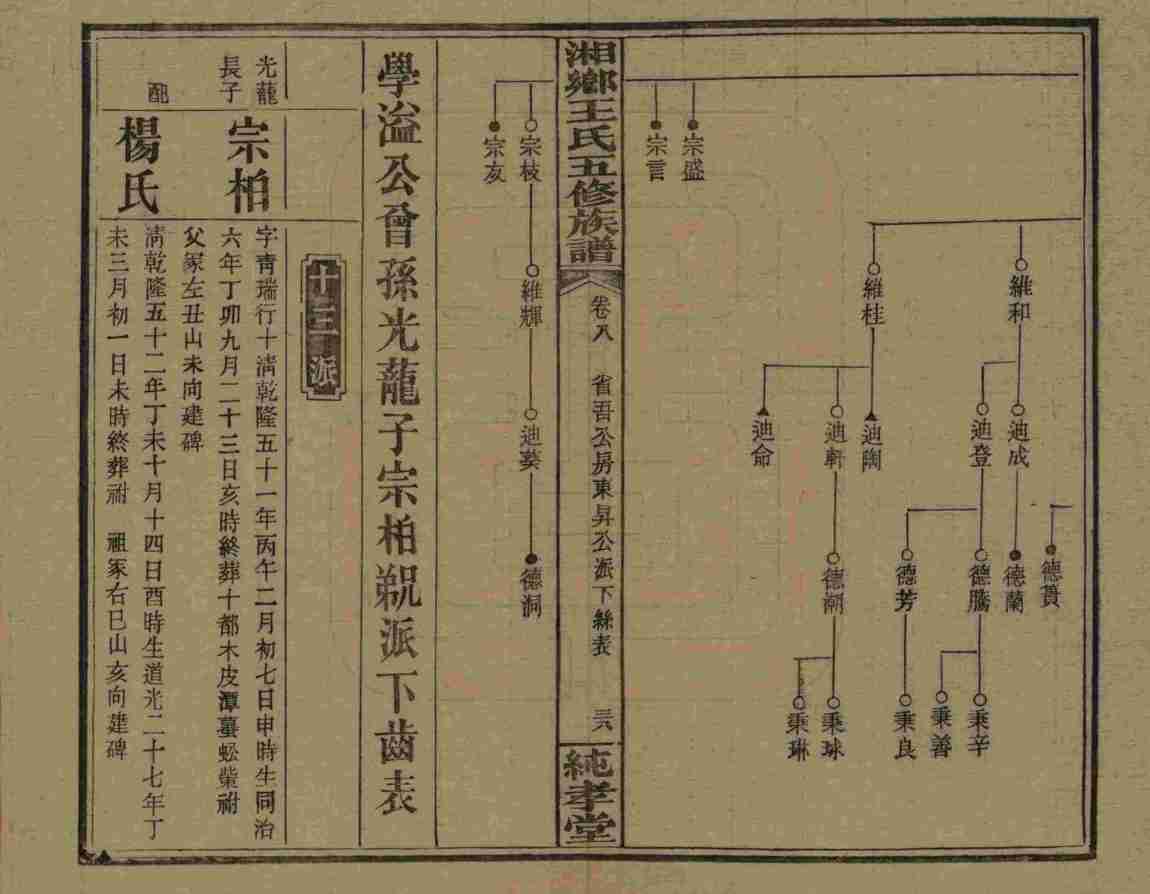 宗盛
宗言
維和
維桂
迪成
迪登
迪陶
迪軒
迪命
德貴
德蘭
德騰
德芳
德潮
秉辛
秉善
秉良
秉球
秉琳
湘鄉王氏五修族譜
卷八
省吾公房東昇公派下絲表
三六
純孝堂
宗枝
宗友
維輝
迪葵
德洞
學溢公曾孫光蘢子宗柏覡派下齒表
十三派
光蘢長子
宗柏
字青瑞行十清乾隆五十一年丙午二月初七日申時生同治
六年丁卯九月二十三日亥時終葬十都木皮潭蟇蚣㘴祔
父冢左丑山未向建碑
配
楊氏
清乾隆五十二年丁未十月十四日酉時生道光二十七年丁
未三月初一日未時終葬祔 祖冢右巳山亥向建碑